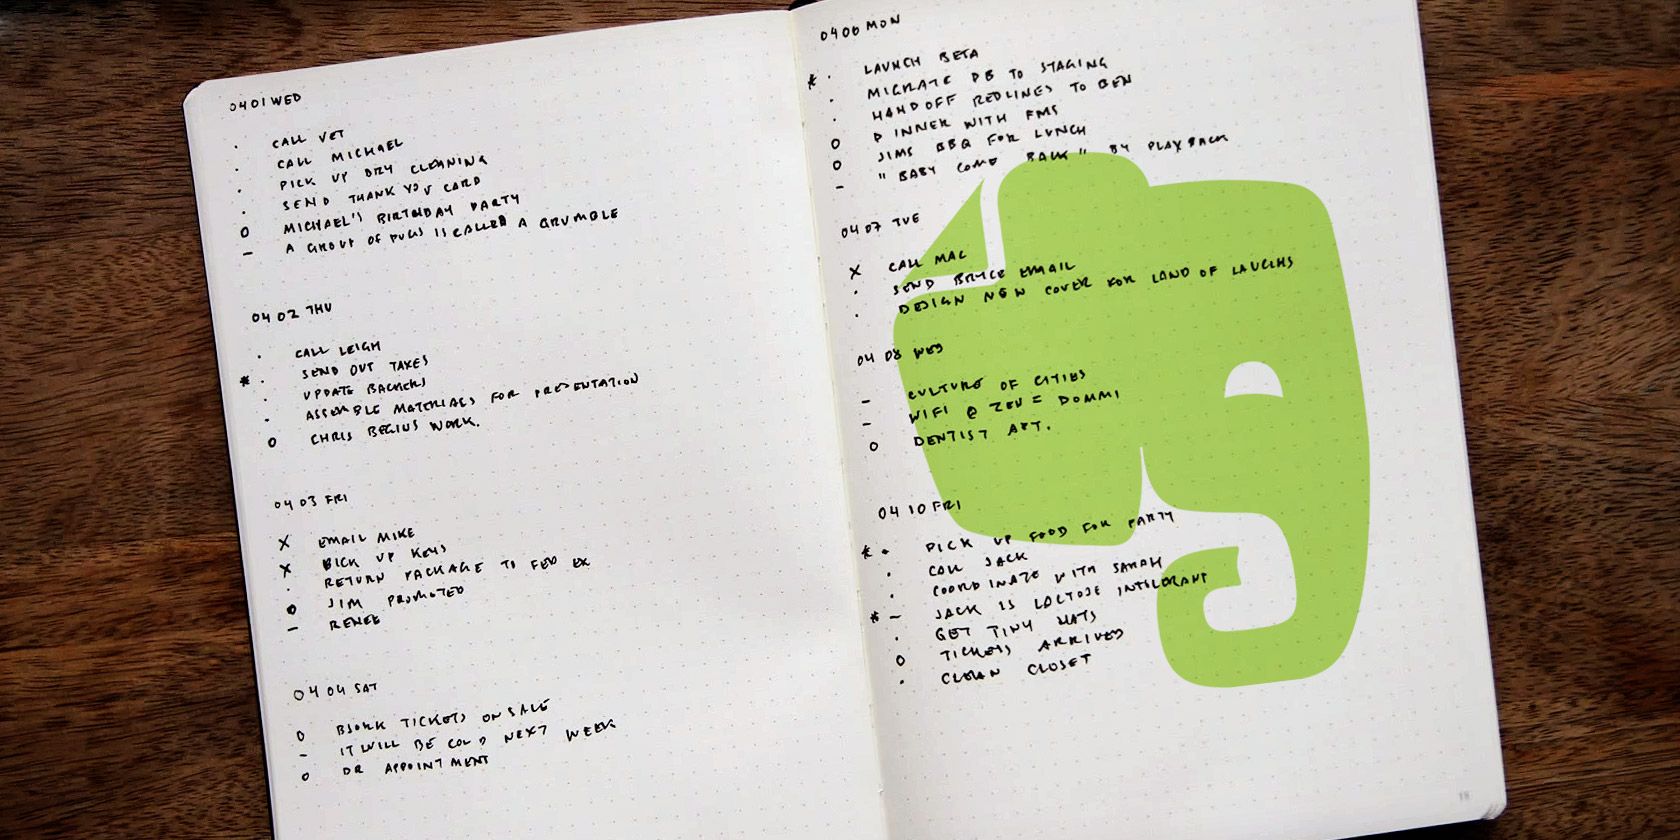 0401 WED
. CALL VET
. CALL MICHAEL
. PICK UP DRY CLEANING
. SEND THANK YOU CARD
O MICHAEL'S BIRTHDAY PARTY
– A GROUP OF PUGS IS CALLED A GRUMBLE
0402 THU
. CALL LEIGH
* . SEND OUT TAXES
. UPDATE BACKERS
. ASSEMBLE MATERIALS FOR PRESENTATION
O CHRIS BEGINS WORK.
0403 FRI
X EMAIL MIKE
X PICK UP KEYS
. RETURN PACKAGE TO FED EX
O JIM PROMOTED
– RENEE
0404 SAT
O BJORK TICKETS ON SALE
– IT WILL BE COLD NEXT WEEK
O DR APPOINTMENT
0406 MON
* . LAUNCH BETA
. MIGRATE DB TO STAGING
. HANDOFF REDLINES TO BEN
O DINNER WITH FMS
O JIMS BBQ FOR LUNCH
– "BABY COME BACK" BY PLAYBACK
0407 TUE
X CALL MAC
. SEND BRYCE EMAIL
. DESIGN NEW COVER FOR LAND OF LAUGHS
0408 WED
– CULTURE OF CITIES
– WIFI @ ZEN = DOMMI
O DENTIST APT.
0410 FRI
* . PICK UP FOOD FOR PARTY
. CALL JACK
. COORDINATE WITH SARAH
* – JACK IS LACTOSE INTOLERANT
. GET TINY HATS
O TICKETS ARRIVED
. CLEAN CLOSET
18